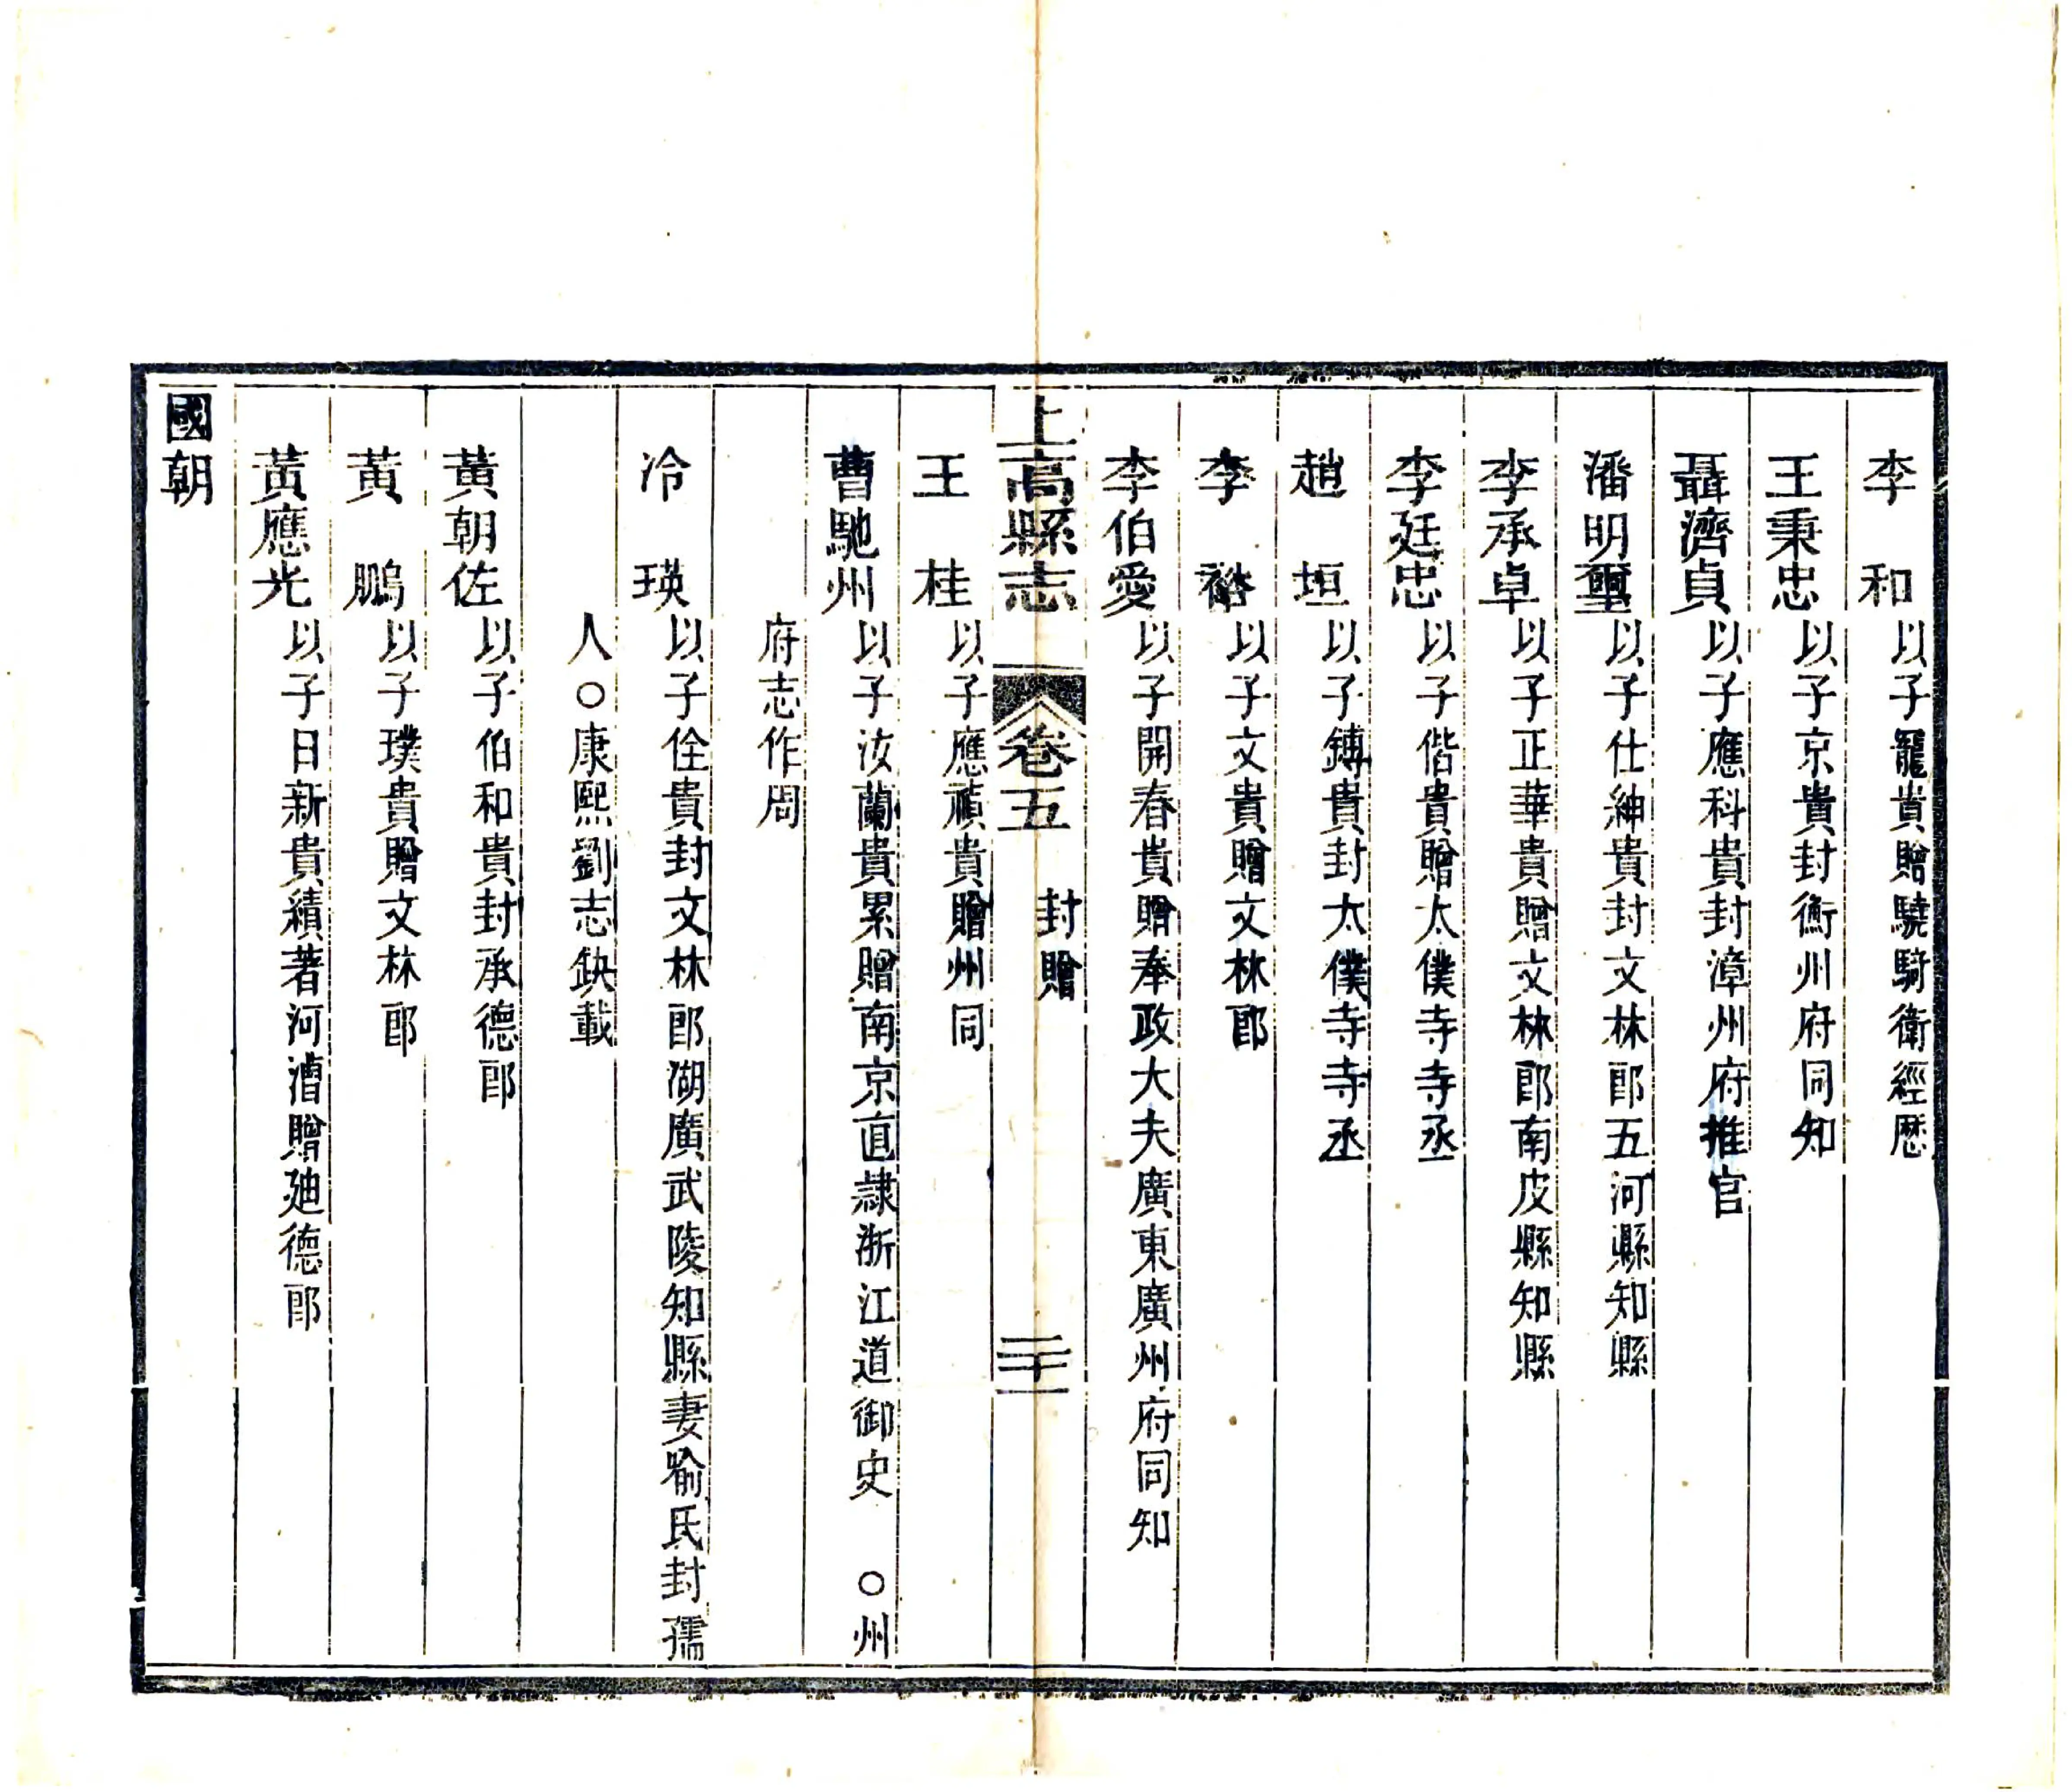 李　和以子寵貴贈驍騎衛經歷
王秉忠以子京貴封衡州府同知
聶濟貞以子應科貴封漳州府推官
潘明璽以子仕紳貴封文林郎五河縣知縣
李承卓以子正華貴贈文林郎南皮縣知縣
李廷忠以子偕貴贈太僕寺寺丞
趙　垣以子鏄貴封太僕寺寺丞
李　裕以子文貴贈文林郎
李伯愛以子開春貴贈奉政大夫廣東廣州府同知
上高縣志　卷五　封贈　三十一
王　桂以子應禎貴贈州同
曹馳州以子汝蘭貴累贈南京直隸浙江道御史　○州
府志作周
冷　瑛以子佺貴封文林郎湖廣武陵知縣妻喻氏封孺
人○康熙劉志缺載
黃朝佐以子伯和貴封承德郎
黃　鵬以子璞貴贈文林郎
黃應光以子日新貴績著河漕贈廸德郎
國朝